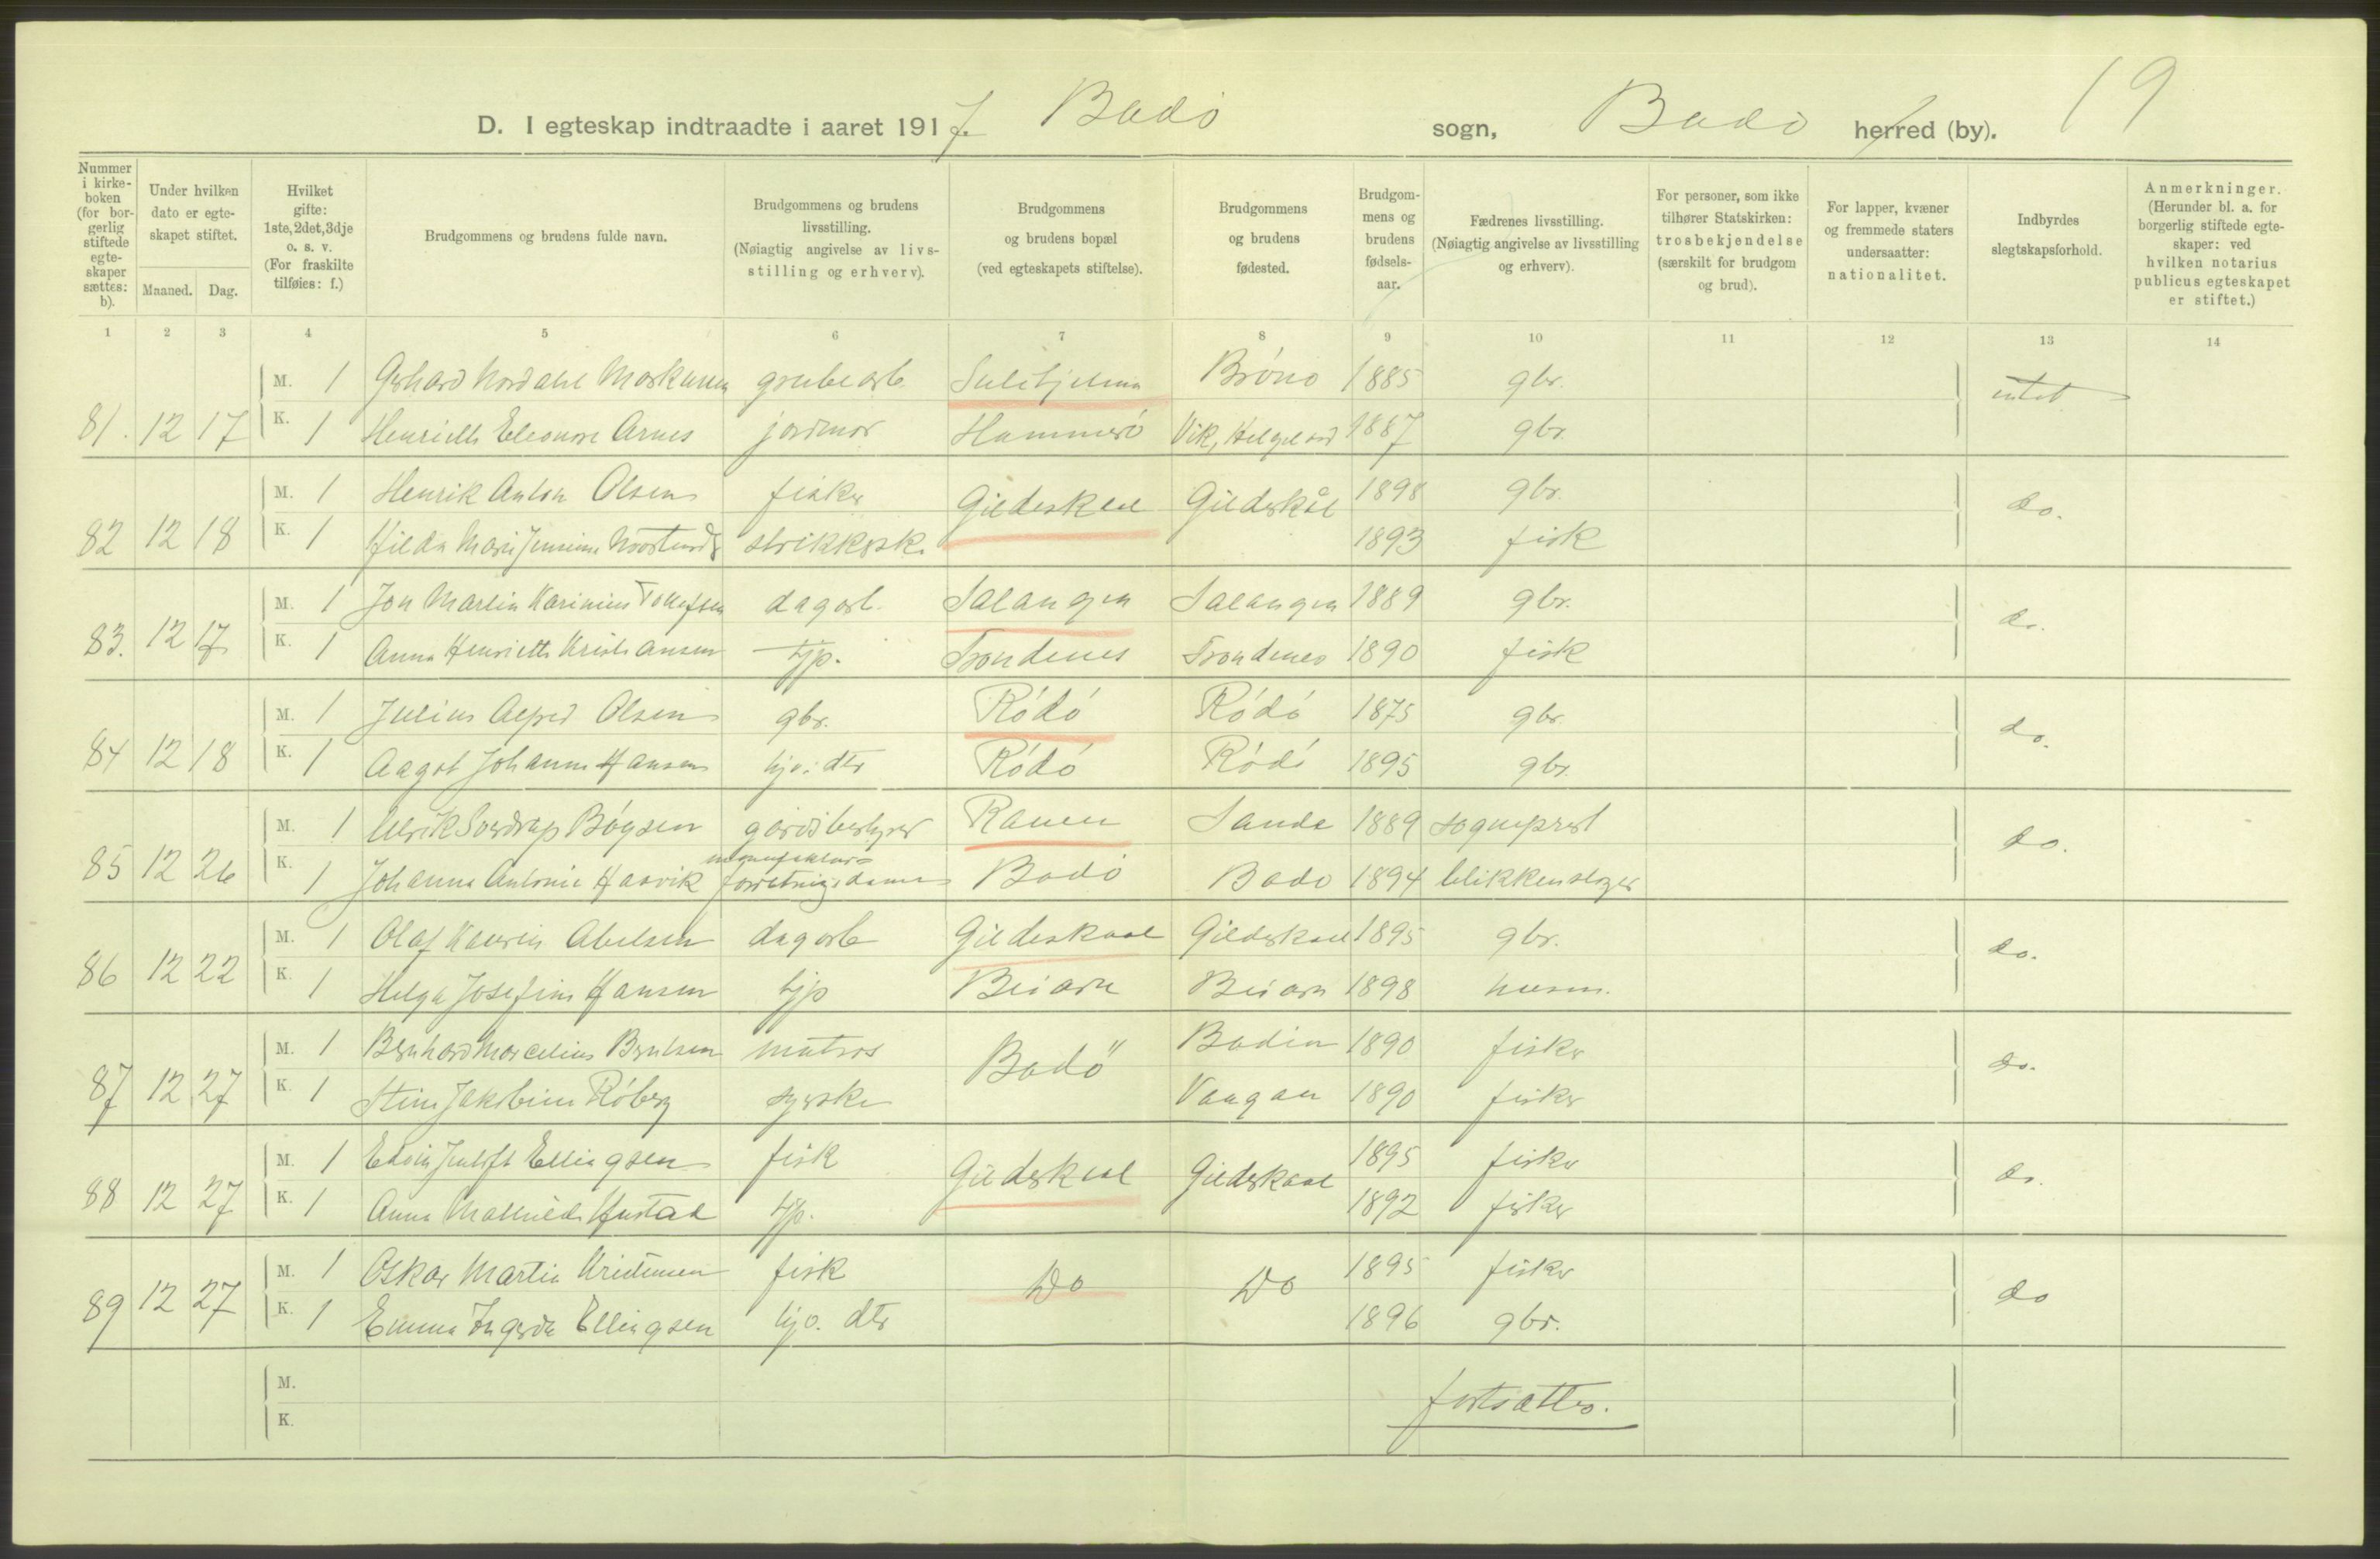 19
D. I egteskap indtraadte i aaret 1917. Bodø sogn, Bodø herred (by).
Nummer i kirke-boken (for bor-gerlig stiftede egte-skaper sættes: b).
Under hvilken dato er egte-skapet stiftet.
Maaned. Dag.
Hvilket gifte: 1ste, 2det, 3dje o. s. v. (For fraskilte tilføies: f.)
Brudgommens og brudens fulde navn.
Brudgommens og brudens livsstilling. (Nøiagtig angivelse av livs-stilling og erhverv).
Brudgommens og brudens bopæl (ved egteskapets stiftelse).
Brudgommens og brudens fødested.
Brudgom-mens og brudens fødsels-aar.
Fædrenes livsstilling. (Nøiagtig angivelse av livsstilling og erhverv).
For personer, som ikke tilhører Statskirken: trosbekjendelse (særskilt for brudgom og brud).
For lapper, kvæner og fremmede staters undersaatter: nationalitet.
Indbyrdes slegtskapsforhold.
Anmerkninger. (Herunder bl. a. for borgerlig stiftede egte-skaper: ved hvilken notarius publicus egteskapet er stiftet.)
1 2 3 4 5 6 7 8 9 10 11 12 13 14
M. 1 Gerhard Nordahl grubearb. Sulitjelma Brönö 1885 gbr. intet
81. 12 17 K. 1 Henriette Eleonore Arnes jordmor Hammerö Vik, Helgeland 1887 gbr.
M. 1 Henrik Anton Olsen fisker Gildeskaal Gildeskål 1898 gbr. do.
82 12 18 K. 1 Hilda Marie Jensine strikkersk. 1893 fisk
M. 1 Jon Martin Karinius Tollefsen dagarb. Salangen Salangen 1889 gbr. do.
83. 12 17 K. 1 Anna Henriette Kristiansen tjp. Trondenes Trondenes 1890 fisk
M. 1 Julius Alfred Olsen gbr. Rödö Rödö 1875 gbr. do.
84 12 18 K. 1 Aagot Johanne Hansen hjv. dtr Rödö Rödö 1895 gbr.
M. 1 Ulrik Sverdrup Böysen gårdsbestyrer Ranen Sande 1889 sogneprest do.
manufaktur=
85 12 26 K. 1 Johanna Antonie Haavik forretningsdame Bodö Bodö 1894 blikkenslager
M. 1 Olaf Kaurin Abelsen dagarb Gildeskaal Gildeskaal 1895 gbr. do.
86 12 22 K. 1 Helga Josefine Hansen tjp Beiarn Beiarn 1898 husm.
M. 1 Bernhard Marcelius Berntsen matros Bodö Bodin 1890 fisker do.
87 12 27 K. 1 Stine Jakobine Röberg syerske Vaagan 1890 fisker
M. 1 Edvin Ellingsen fisk Gildeskaal Gildeskaal 1895 fisker do.
88 12 27 K. 1 Anna Mathilde Hustad tjp. 1892 fisker
M. 1 Oskar Martin Kristensen fisk Do Do 1895 fisker do
89 12 27 K. 1 Emma Ingerda Ellingsen hjv. dtr 1896 gbr.
M.
K.
fortsættes.